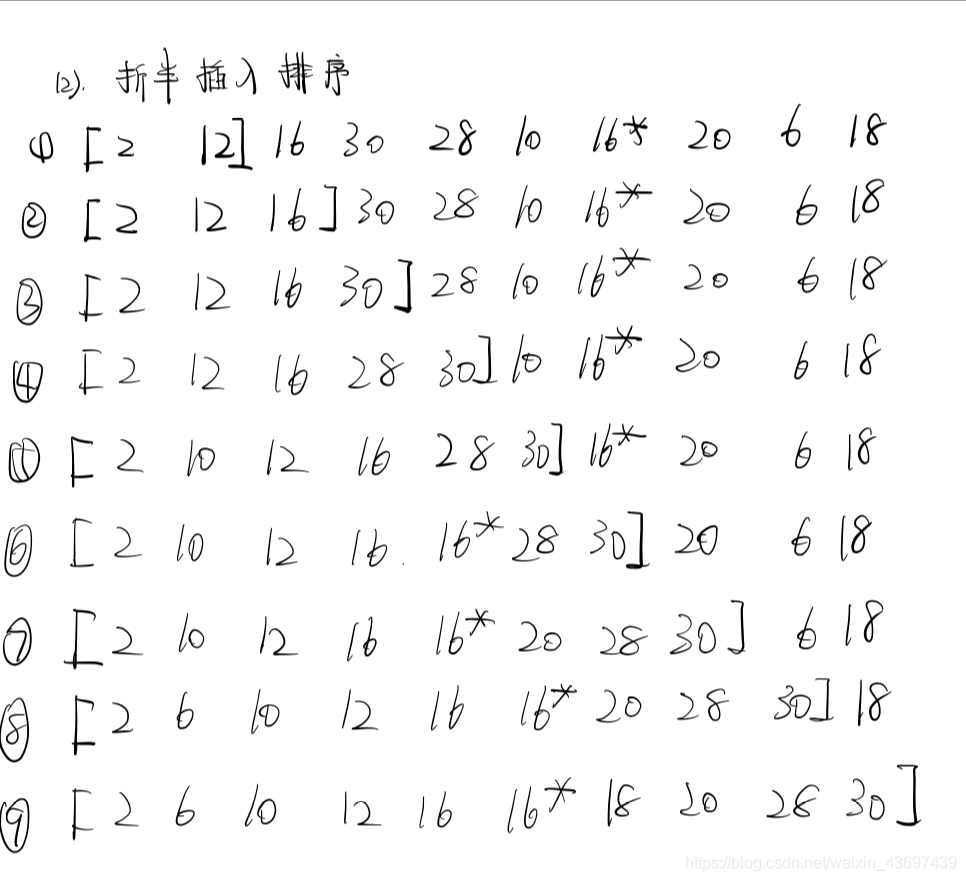 (2). 折半插入排序
① [2 12] 16 30 28 10 16* 20 6 18
② [2 12 16] 30 28 10 16* 20 6 18
③ [2 12 16 30] 28 10 16* 20 6 18
④ [2 12 16 28 30] 10 16* 20 6 18
⑤ [2 10 12 16 28 30] 16* 20 6 18
⑥ [2 10 12 16 16* 28 30] 20 6 18
⑦ [2 10 12 16 16* 20 28 30] 6 18
⑧ [2 6 10 12 16 16* 20 28 30] 18
⑨ [2 6 10 12 16 16* 18 20 28 30]
https://blog.csdn.net/weixin_43697439